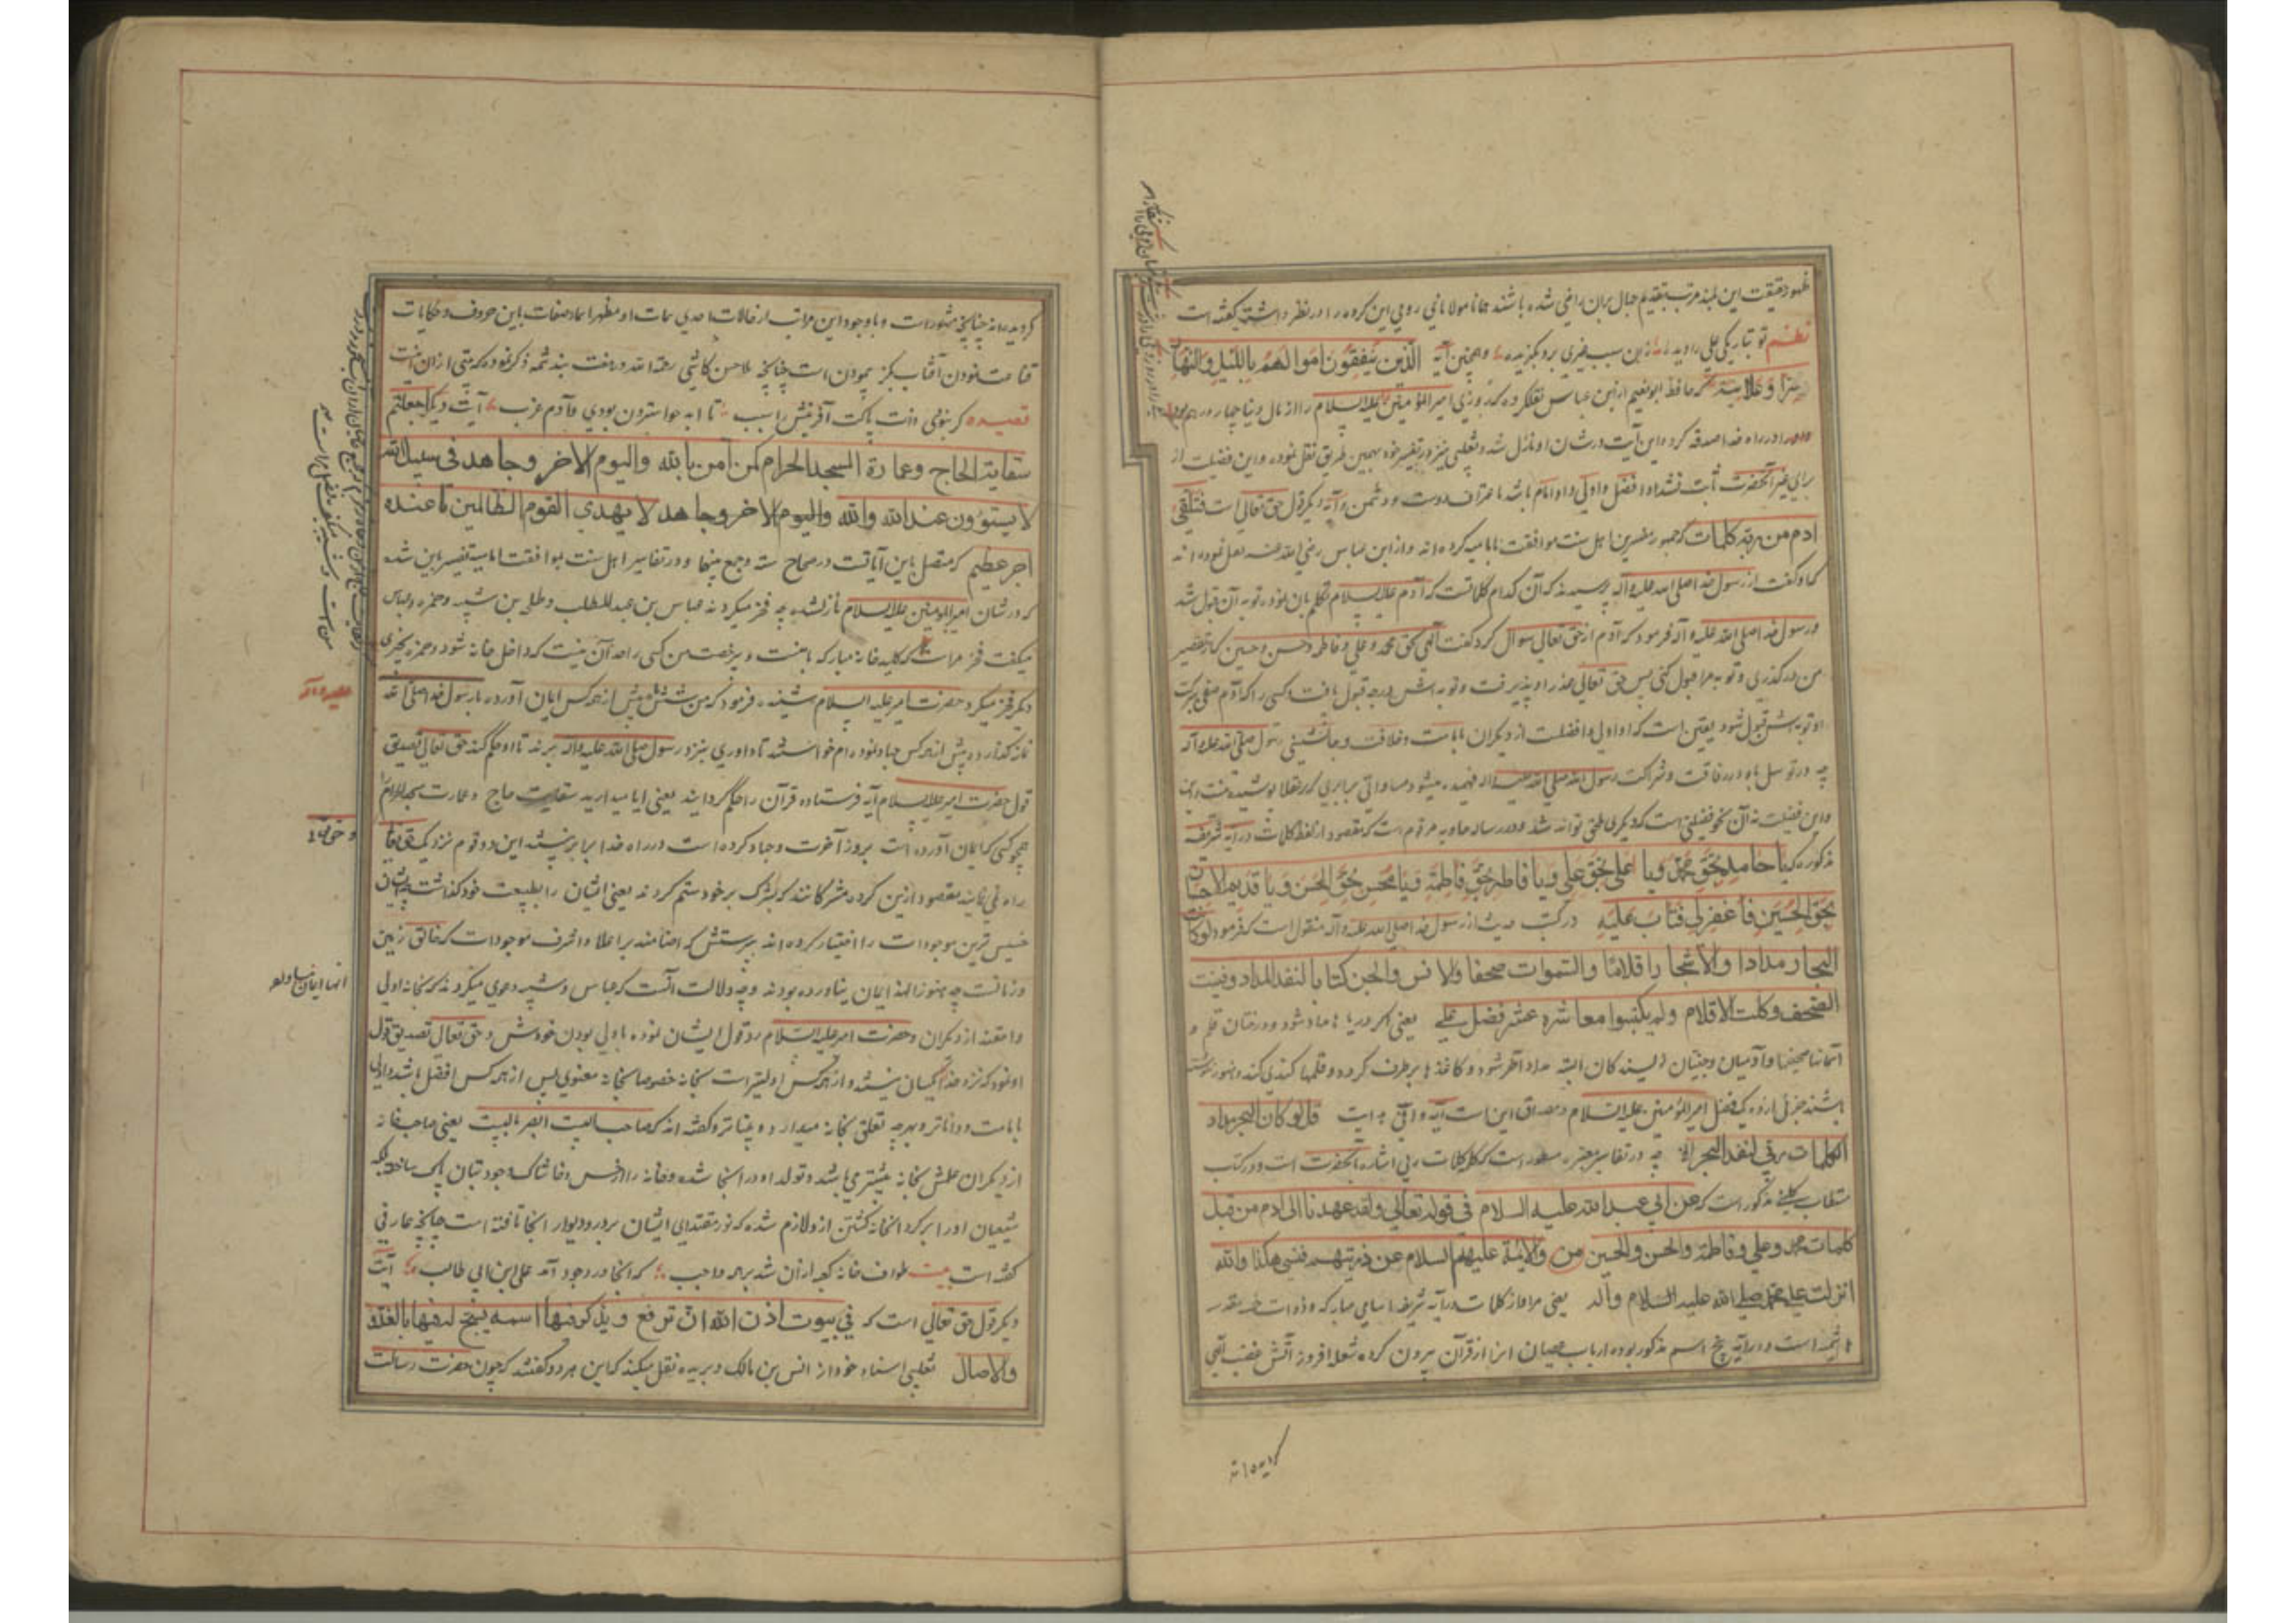 ظهور حقیقت این بلند مرتبه بتقدیم جبال بران راضی شده باشند همانا مولانای رومی این کروه را در نظر داشته کفته است
نظم تو بتاریکی علی را دیده زین سبب غیری برو بکزیده وهمچنین آیه الذین ینفقون اموالهم باللیل والنهار
سرا وعلانیة که حافظ ابونعیم از ابن عباس نقل کرده که روزی امیر المؤمنین علیه السلام را از مال دنیا چهار درهم بود
در راه خدا صدقه کرد این آیت در شان او نازل شد وثعلبی نیز در تفسیر خود بهمین طریق نقل نموده واین فضیلت از
برای غیر آنحضرت ثابت نشد او افضل واولی واو امام باشد باعتراف دوست ودشمن وآیه دیکر قول حق تعالی است فتلقی
ادم من ربه کلمات که جمهور مفسرین اهل سنت موافقت بامامیه کرده اند واز ابن عباس رضی الله عنه نقل نموده اند
که او کفت از رسول خدا صلی الله علیه وآله پرسیدند که آن کدام کلماتست که آدم علیه السلام تکلم بان نمود وتوبه آن قبول شد
ورسول خدا صلی الله علیه وآله فرمود که آدم از حق تعالی سوال کرد کفت الهی بحق محمد وعلی وفاطمه وحسن وحسین که از تقصیر
من درکذری وتوبه مرا قبول کنی پس حق تعالی عذر او پذیرفت وتوبه اش درجه قبول یافت وکسی را که آدم صفی ببرکت
او توبه اش قبول شود یقین است که او اولی وافضلست از دیکران بامامت وخلافت وجانشینی رسول صلی الله علیه وآله
چه در توسل باو ورفاقت وشراکت رسول الله صلی الله علیه وآله فهمیده میشود مساواتی برابری که بر عقلا پوشیده نیست
واین فضیلت نه آن نحو فضیلتی است که دیکری ملحق تواند شد ودر رساله حاویه مرقوم است که مقصود از لفظ کلمات در آیه شریفه
مذکوره که یا حامد بحق محمد ویا علی بحق علی ویا فاطر بحق فاطمة ویا محسن بحق الحسن ویا قدیم الاحسان
بحق الحسین فاغفرلی فتاب علیه در کتب حدیث از رسول خدا صلی الله علیه وآله منقول است که فرمود لوکان
البحار مدادا والاشجار اقلاما والسموات صحفا والانس والجن کتابا لنفد المداد وفنیت
الصحف وکلت الاقلام ولم یکتبوا معاشره عشر فضل علی یعنی اکر دریاها مداد شود ودرختان قلم و
آسمانها صحیفها وآدمیان وجنیان نویسندکان البته مداد آخر شود وکاغذها برطرف کردد وقلمها کندی کند وهنوز ننوشته
باشند جزئی از ده یک فضل امیر المؤمنین علیه السلام ومصداق این است آیه وافی هدایت قل لو کان البحر مداد
الکلمات ربی لنفد البحر الا چه در تفاسیر معتبره مسطور است که کلمات ربی اشاره بآنحضرت است ودر کتاب
مستطاب کلینی مذکور است که عن ابی عبد الله علیه السلام فی قوله تعالی ولقد عهدنا الی ادم من قبل
کلمات محمد وعلی وفاطمة والحسن والحسین من والائمة علیهم السلام عن ذریتهم فنسی هکذا والله
انزلت علی محمد صلی الله علیه السلام وآله یعنی مراد از کلمات در آیه شریفه اسامی مبارکه
است ودر آیه پنج اسم مذکور بوده ارباب عصیان انرا از قرآن بیرون کرده شعله افروز آتش غضب الهی
کردیده اند
کردیده اند چنانچه مشهور است وبا وجود این مراتب از حالات احدی سمات او مظهر اعماد صفات باین حروف وحکایات
قناعت نمودن آفتاب بکز پیمودن است چنانچه ملا حسن کاشی رحمة الله در هفت بند شمه ذکر نموده که بیتی از ان اینست
قصیده کر نبودی ذات پاکت آفرینش را سبب تا ابد حوا سترون بودی وآدم عزب آیت دیکر اجعلتم
سقایة الحاج وعمارة المسجد الحرام کمن آمن بالله والیوم الاخر وجاهد فی سبیل الله
لا یستوون عند الله والله والیوم الاخر وجاهد لا یهدی القوم الظالمین تا عنده
اجر عظیم که متصل باین آیاتست در صحاح سته وجمع بینها ودر تفاسیر اهل سنت بموافقت امامیه تفسیر این شده
که در شان امیر المؤمنین علیه السلام نازل شده چه فخر میکردند عباس بن عبد المطلب وطلحه بن شیبه وحمزه وعباس
میکفت فخر مراست که کلید خانه مبارکه بامنست وبی رخصت من کسی را حد آن نیست که داخل خانه شود وحمزه بچیزی
دیکر فخر میکرد حضرت امیر علیه السلام شنیده فرمود که من شش ماه پیش از همه کس ایمان آورده با رسول خدا صلی الله
علیه وآله
نماز کذارده وپیش از همه کس جهاد نموده ام خواستند تا داوری بنزد رسول صلی الله علیه وآله برند تا او حکم کند حق تعالی تصدیق
قول حضرت امیر علیه السلام آیه فرستاده قرآن را حکم کردانید یعنی ایا میدارید سقایت حاج وعمارت مسجد الحرام را
همچو کسی که ایمان آورده است بروز آخرت وجهاد کرده است در راه خدا برابر نیستند این دو قوم نزدیک حق تعالی
راه نمی نماید مقصود ازین کروه مشرکانند که بشرک برخود ستم کردند یعنی ایشان را بطبیعت خود کذاشته
خسیس ترین موجودات را اختیار کرده اند بپرستش که اصنامند بر اعلا واشرف موجودات که خالق زمین
وزمانست چه هنوز ایمان نیاورده بودند وجه دلالت آنست که عباس وشیبه دعوی میکردند که بخانه اولی
وامقند از دیکران وحضرت امیر علیه السلام رد قول ایشان نموده باولی بودن خودش وحق تعالی تصدیق قول
او نمود که نزد خدا یکسان نیستند واز همه کس اولیتر است بخانه خصوصا بخانه معنوی پس از همه کس افضل باشد واولی
بامامت وداناتر وبهرچه تعلق بخانه میدارد وبیناتر وکفته اند که صاحب البیت ابصر بالبیت یعنی صاحب خانه
از دیکران علمش بخانه بیشتر میباشد وتولد او در انجا شده وخانه را از خس وخاشاک وجود بتان پاک ساخته بلکه
شیعیان او را بر کرد آنخانه کشتن ازو لازم شده که نور مقتدای ایشان بر در ودیوار انجا تافته است چنانچه عارفی
کفته است بیت طواف خانه کعبه از آن شد بر همه واجب که انجا در وجود آمد علی ابن ابی طالب آیت
دیکر قول حق تعالی است که فی بیوت اذن الله ان ترفع ویذکر فیها اسمه یسبح له فیها بالغدو
والاصال ثعلبی اسناد خود از انس بن مالک وبریده نقل میکند که این هر دو کفتند که چون حضرت رسالت